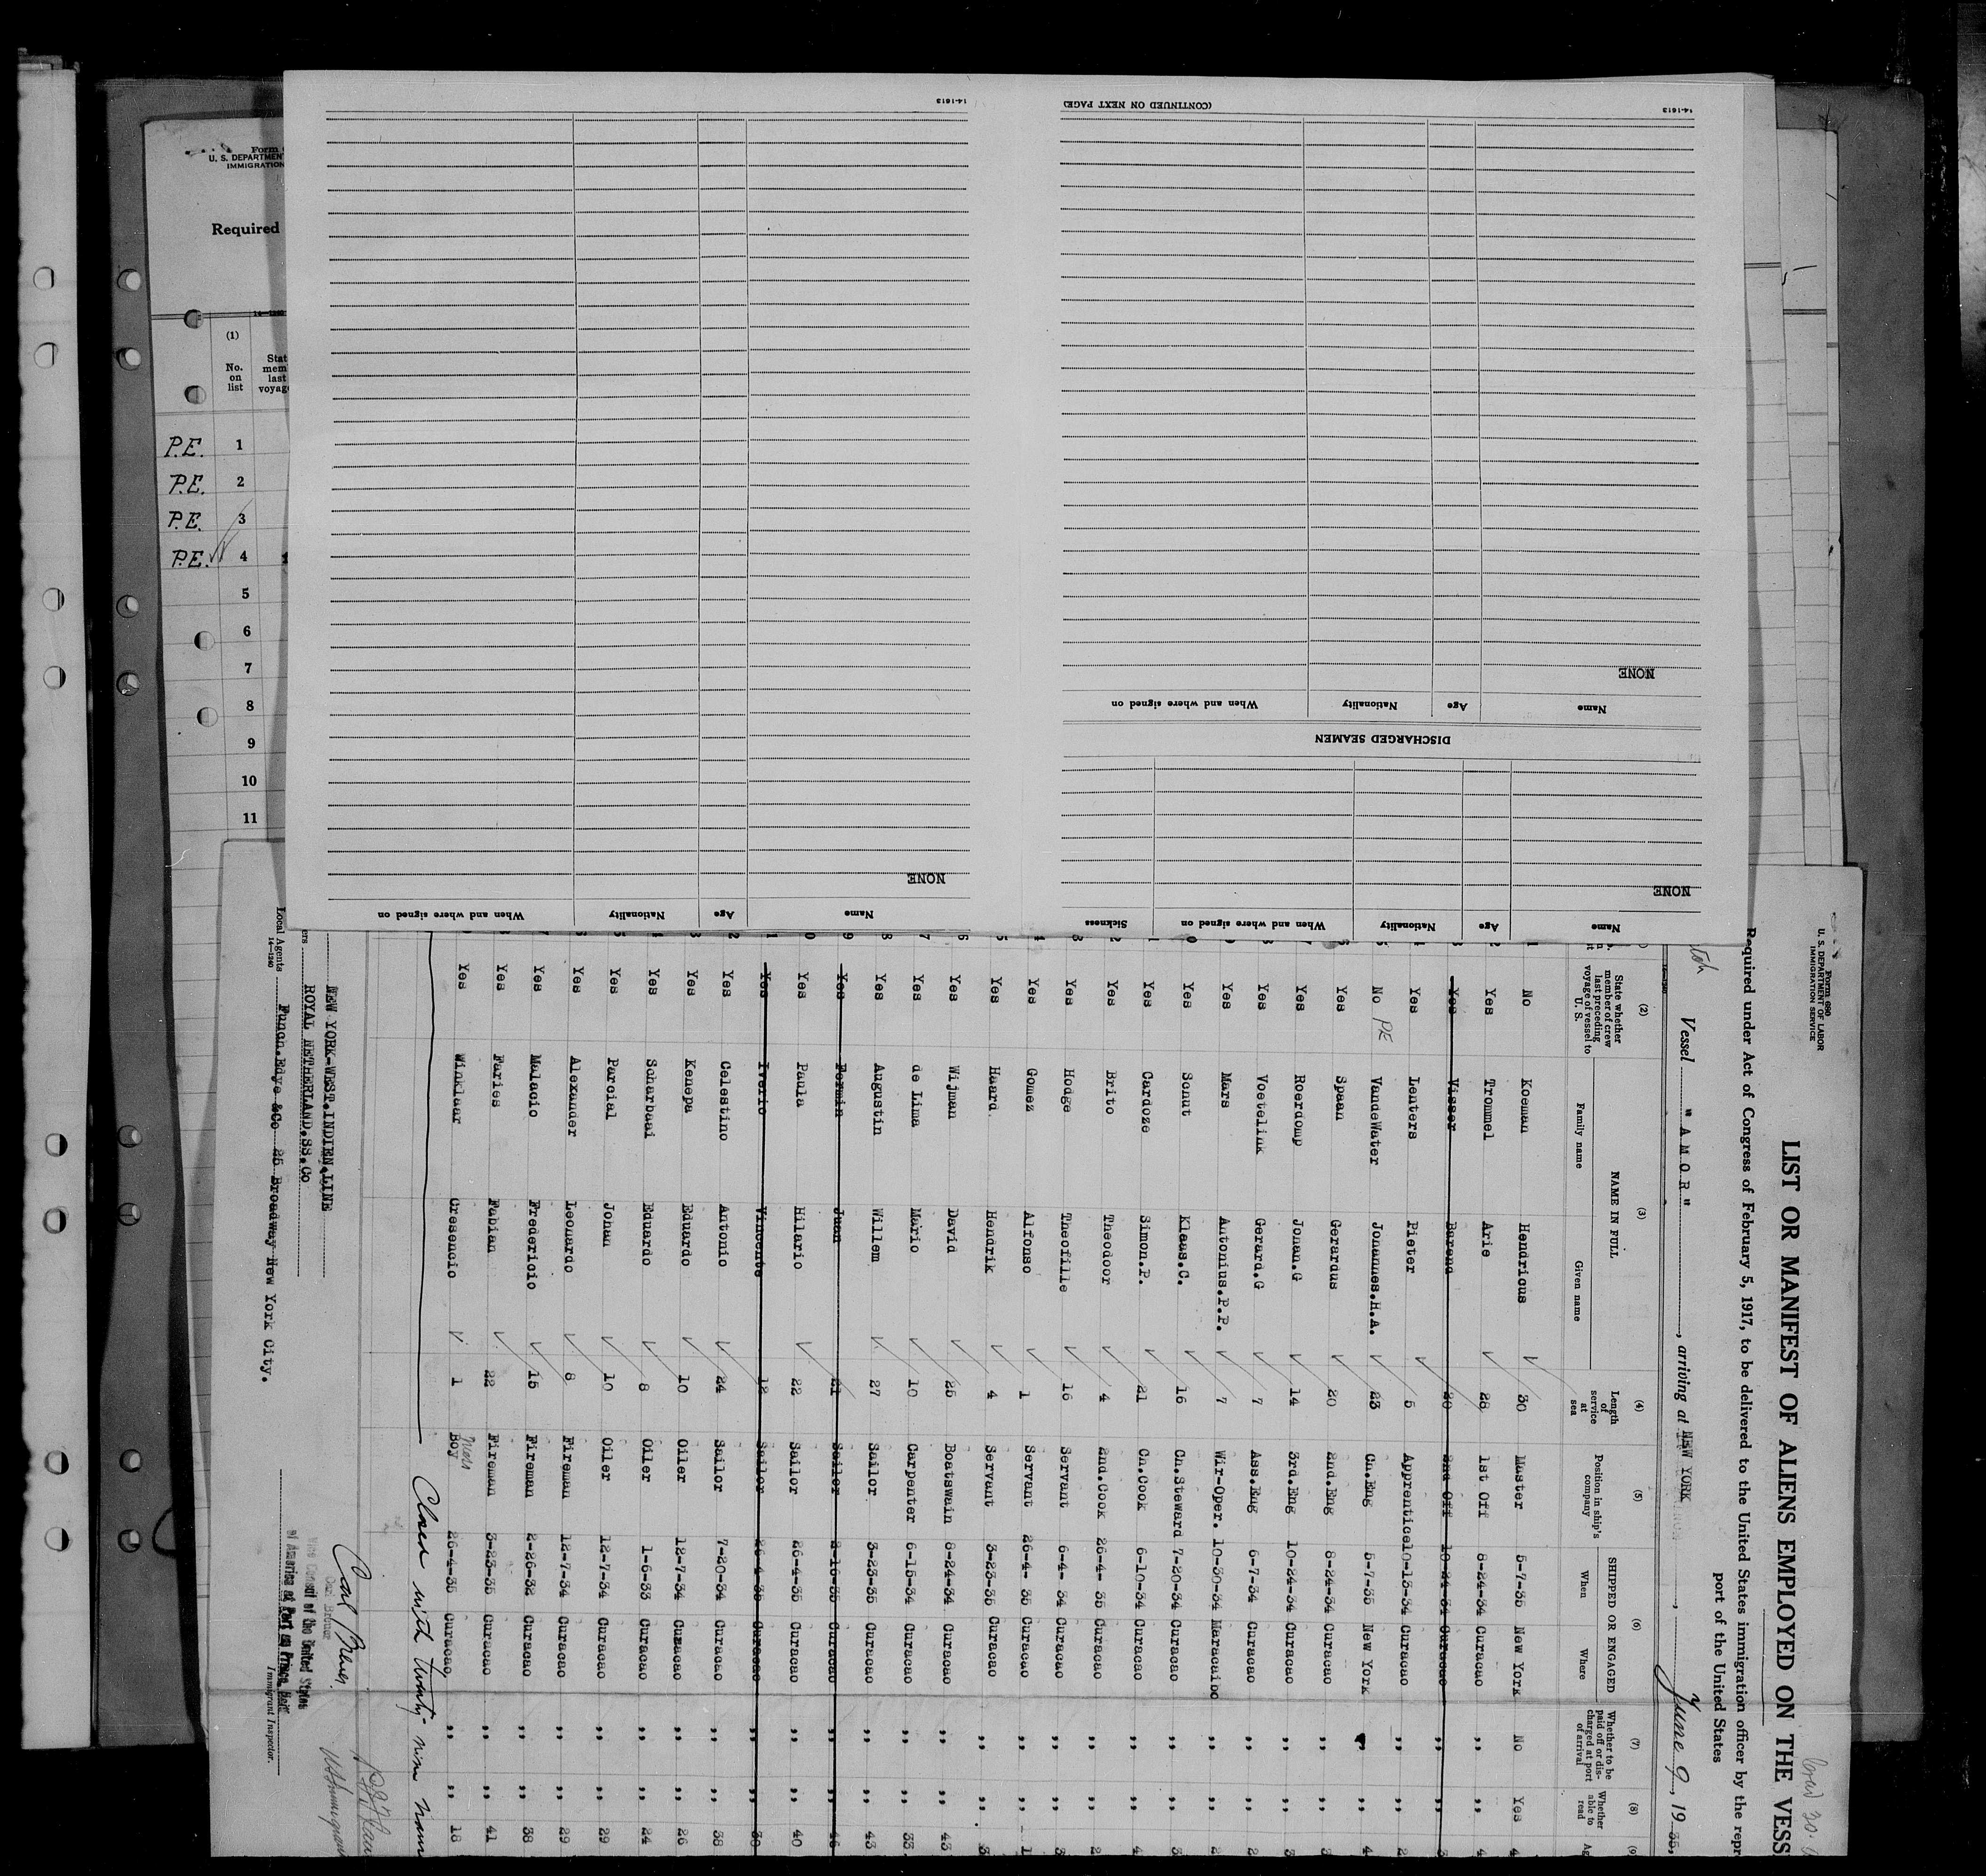 Form
U. S. DEPARTMENT
IMMIGRATION
Required
(1)
No. on list
P.E. 1
P.E. 2
P.E. 3
P.E. 4
5
6
7
8
9
10
11
14-1613
14-1613
(CONTINUED ON NEXT PAGE)
Name Age Nationality When and where signed on Sickness
NONE
DISCHARGED SEAMEN
Name Age Nationality When and where signed on
NONE
Name Age Nationality When and where signed on
NONE
Form 680
U. S. DEPARTMENT OF LABOR
IMMIGRATION SERVICE
LIST OR MANIFEST OF ALIENS EMPLOYED ON THE VESS
Required under Act of Congress of February 5, 1917, to be delivered to the United States immigration officer by the repr
port of the United States
Vessel " A M O R ", arriving at NEW YORK, June 9, 1935,
(2) (3) (4) (5) (6) (7) (8) (9)
State whether member of crew last preceding voyage of vessel to U. S.
NAME IN FULL
Family name Given name
Length of service at sea
Position in ship's company
SHIPPED OR ENGAGED
When Where
Whether to be paid off or discharged at port of arrival
Whether able to read
No Koeman Hendricus 30 Master 5-7-35 New York No Yes 4
Yes Trommel Arie 28 1st Off 8-24-34 Curacao ,, ,, 4
Yes Visser Barend 20 2nd Off 10-24-34 Curacao ,, ,, 3
Yes Lenters Pieter 5 Apprentice 10-13-34 Curacao ,, ,, 2
No PE VandeWater Johannes.H.A. 23 Ch.Eng 5-7-35 New York ,, ,, 4
Yes Spaan Gerardus 20 2nd.Eng 8-24-34 Curacao ,, ,, 3
Yes Roerdomp Johan.G 14 3rd.Eng 10-24-34 Curacao ,, ,, 3
Yes Voetelink Gerard.G 7 Ass.Eng 6-7-34 Curacao ,, ,, 2
Yes Mars Antonius.P.P. 7 Wir-Oper. 10-30-34 Maracaibo ,, ,, 2
Yes Sonut Klaus.C. 16 Ch.Steward 7-20-34 Curacao ,, ,, 3
Yes Cardoze Simon.P. 21 Ch.Cook 6-10-34 Curacao ,, ,, 4
Yes Brito Theodoor 4 2nd.Cook 26-4-35 Curacao ,, ,, 2
Yes Hodge Theofille 16 Servant 6-4-34 Curacao ,, ,, 3
Yes Gomez Alfonso 1 Servant 26-4-35 Curacao ,, ,, 1
Yes Haard Hendrik 4 Servant 3-23-35 Curacao ,, ,, 3
Yes Wijman David 25 Boatswain 8-24-34 Curacao ,, ,, 43
Yes de Lima Mario 10 Carpenter 6-15-34 Curacao ,, ,, 33
Yes Augustin Willem 27 Sailor 3-23-35 Curacao ,, ,, 43
Yes Fermin Juan 21 Sailor 2-16-35 Curacao ,, ,, 46
Yes Paula Hilario 22 Sailor 26-4-35 Curacao ,, ,, 40
Yes Iverio Vincente 12 Sailor 26-4-35 Curacao ,, ,, 30
Yes Celestino Antonio 24 Sailor 7-20-34 Curacao ,, ,, 38
Yes Kenepa Eduardo 10 Oiler 12-7-34 Curacao ,, ,, 26
Yes Scharbaai Eduardo 8 Oiler 1-6-33 Curacao ,, ,, 24
Yes Parcial Johan 10 Oiler 12-7-34 Curacao ,, ,, 29
Yes Alexander Leonardo 8 Fireman 12-7-34 Curacao ,, ,, 29
Yes Malacio Fredericio 15 Fireman 2-26-32 Curacao ,, ,, 38
Yes Faries Fabian 22 Fireman 3-23-35 Curacao ,, ,, 41
Yes Winklaar Cresencio 1 Mess Boy 26-4-35 Curacao ,, ,, 18
Closed with twenty-nine names
NEW YORK-WEST.INDIEN.LINE
ROYAL NETHERLAND.SS.Co
Local Agents Funch.Edye &Co 25 Broadway New York City.
14-1240
Carl Breuer
Vice Consul of the United States
of America at Port au Prince, Haiti
Immigrant Inspector.